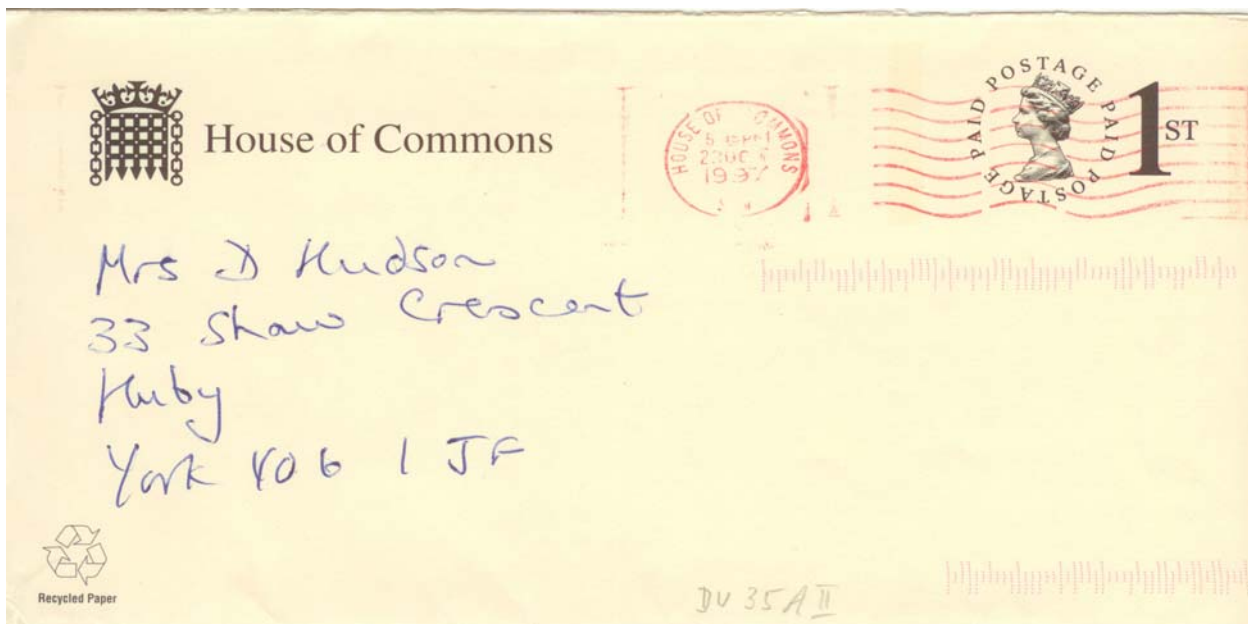 House of Commons
HOUSE OF COMMONS
1997
POSTAGE PAID POSTAGE PAID
1ST
Mrs D Hudson
33 Shaw Crescent
Huby
York YO6 1JF
Recycled Paper
DU 35A II